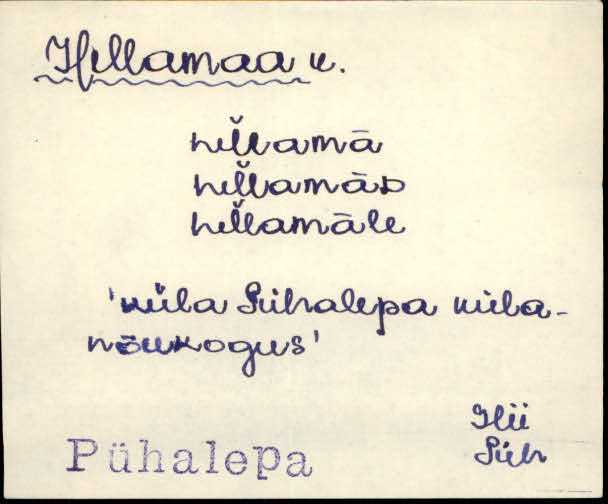 Hellamaa k.
hel̆lamā
hel̆lamās
hel̆lamāle
'küla Pühalepa küla-
nõukogus'
Hii
Püh
Pühalepa